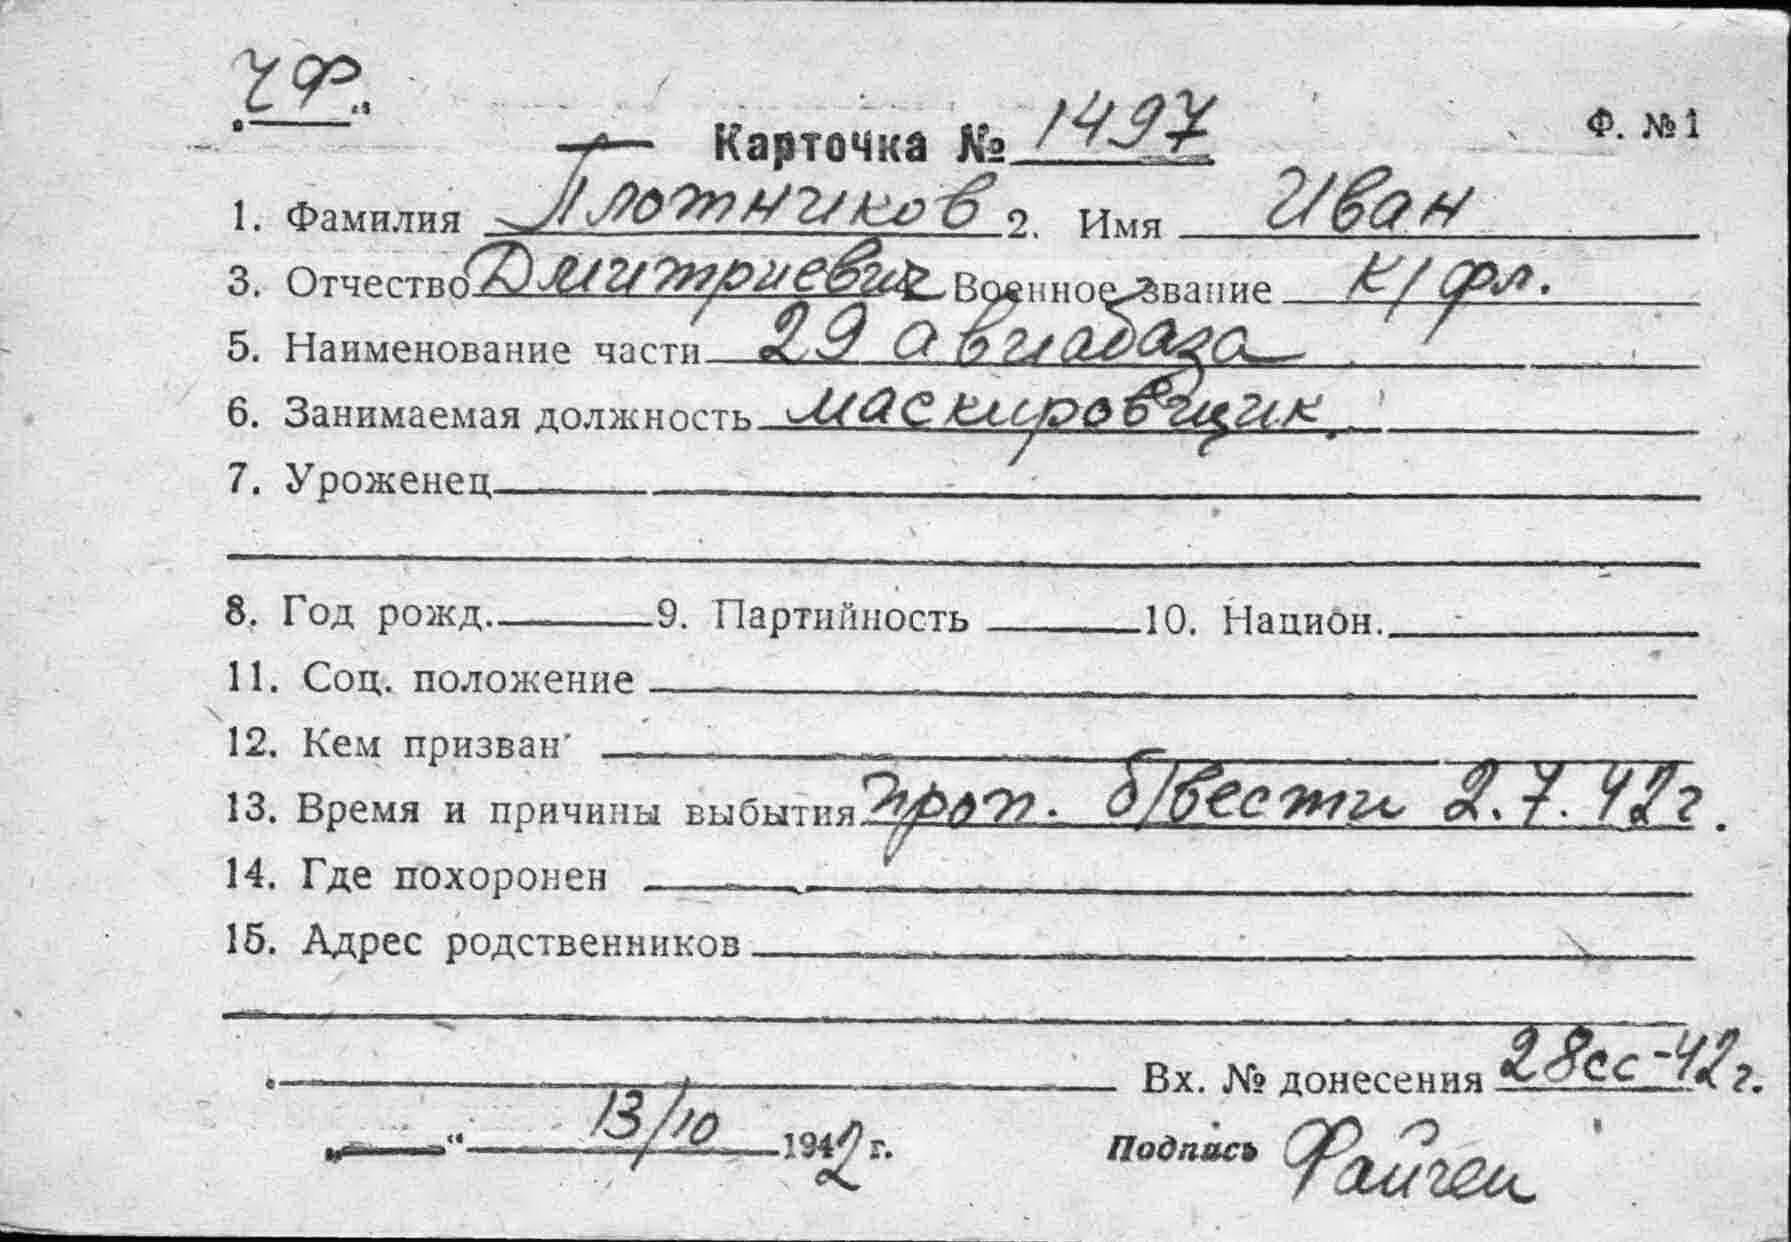 „ЧФ“
Карточка № 1497 Ф. № 1
1. Фамилия Плотников 2. Имя Иван
3. Отчество Дмитриевич Военное звание к/фл.
5. Наименование части 29 авиабаза
6. Занимаемая должность маскировщик.
7. Уроженец
8. Год рожд. 9. Партийность 10. Национ.
11. Соц. положение
12. Кем призван
13. Время и причины выбытия проп. б/вести 2.7.42 г.
14. Где похоронен
15. Адрес родственников
Вх. № донесения 28сс-42 г.
„ “ 13/10 1942 г. Подпись